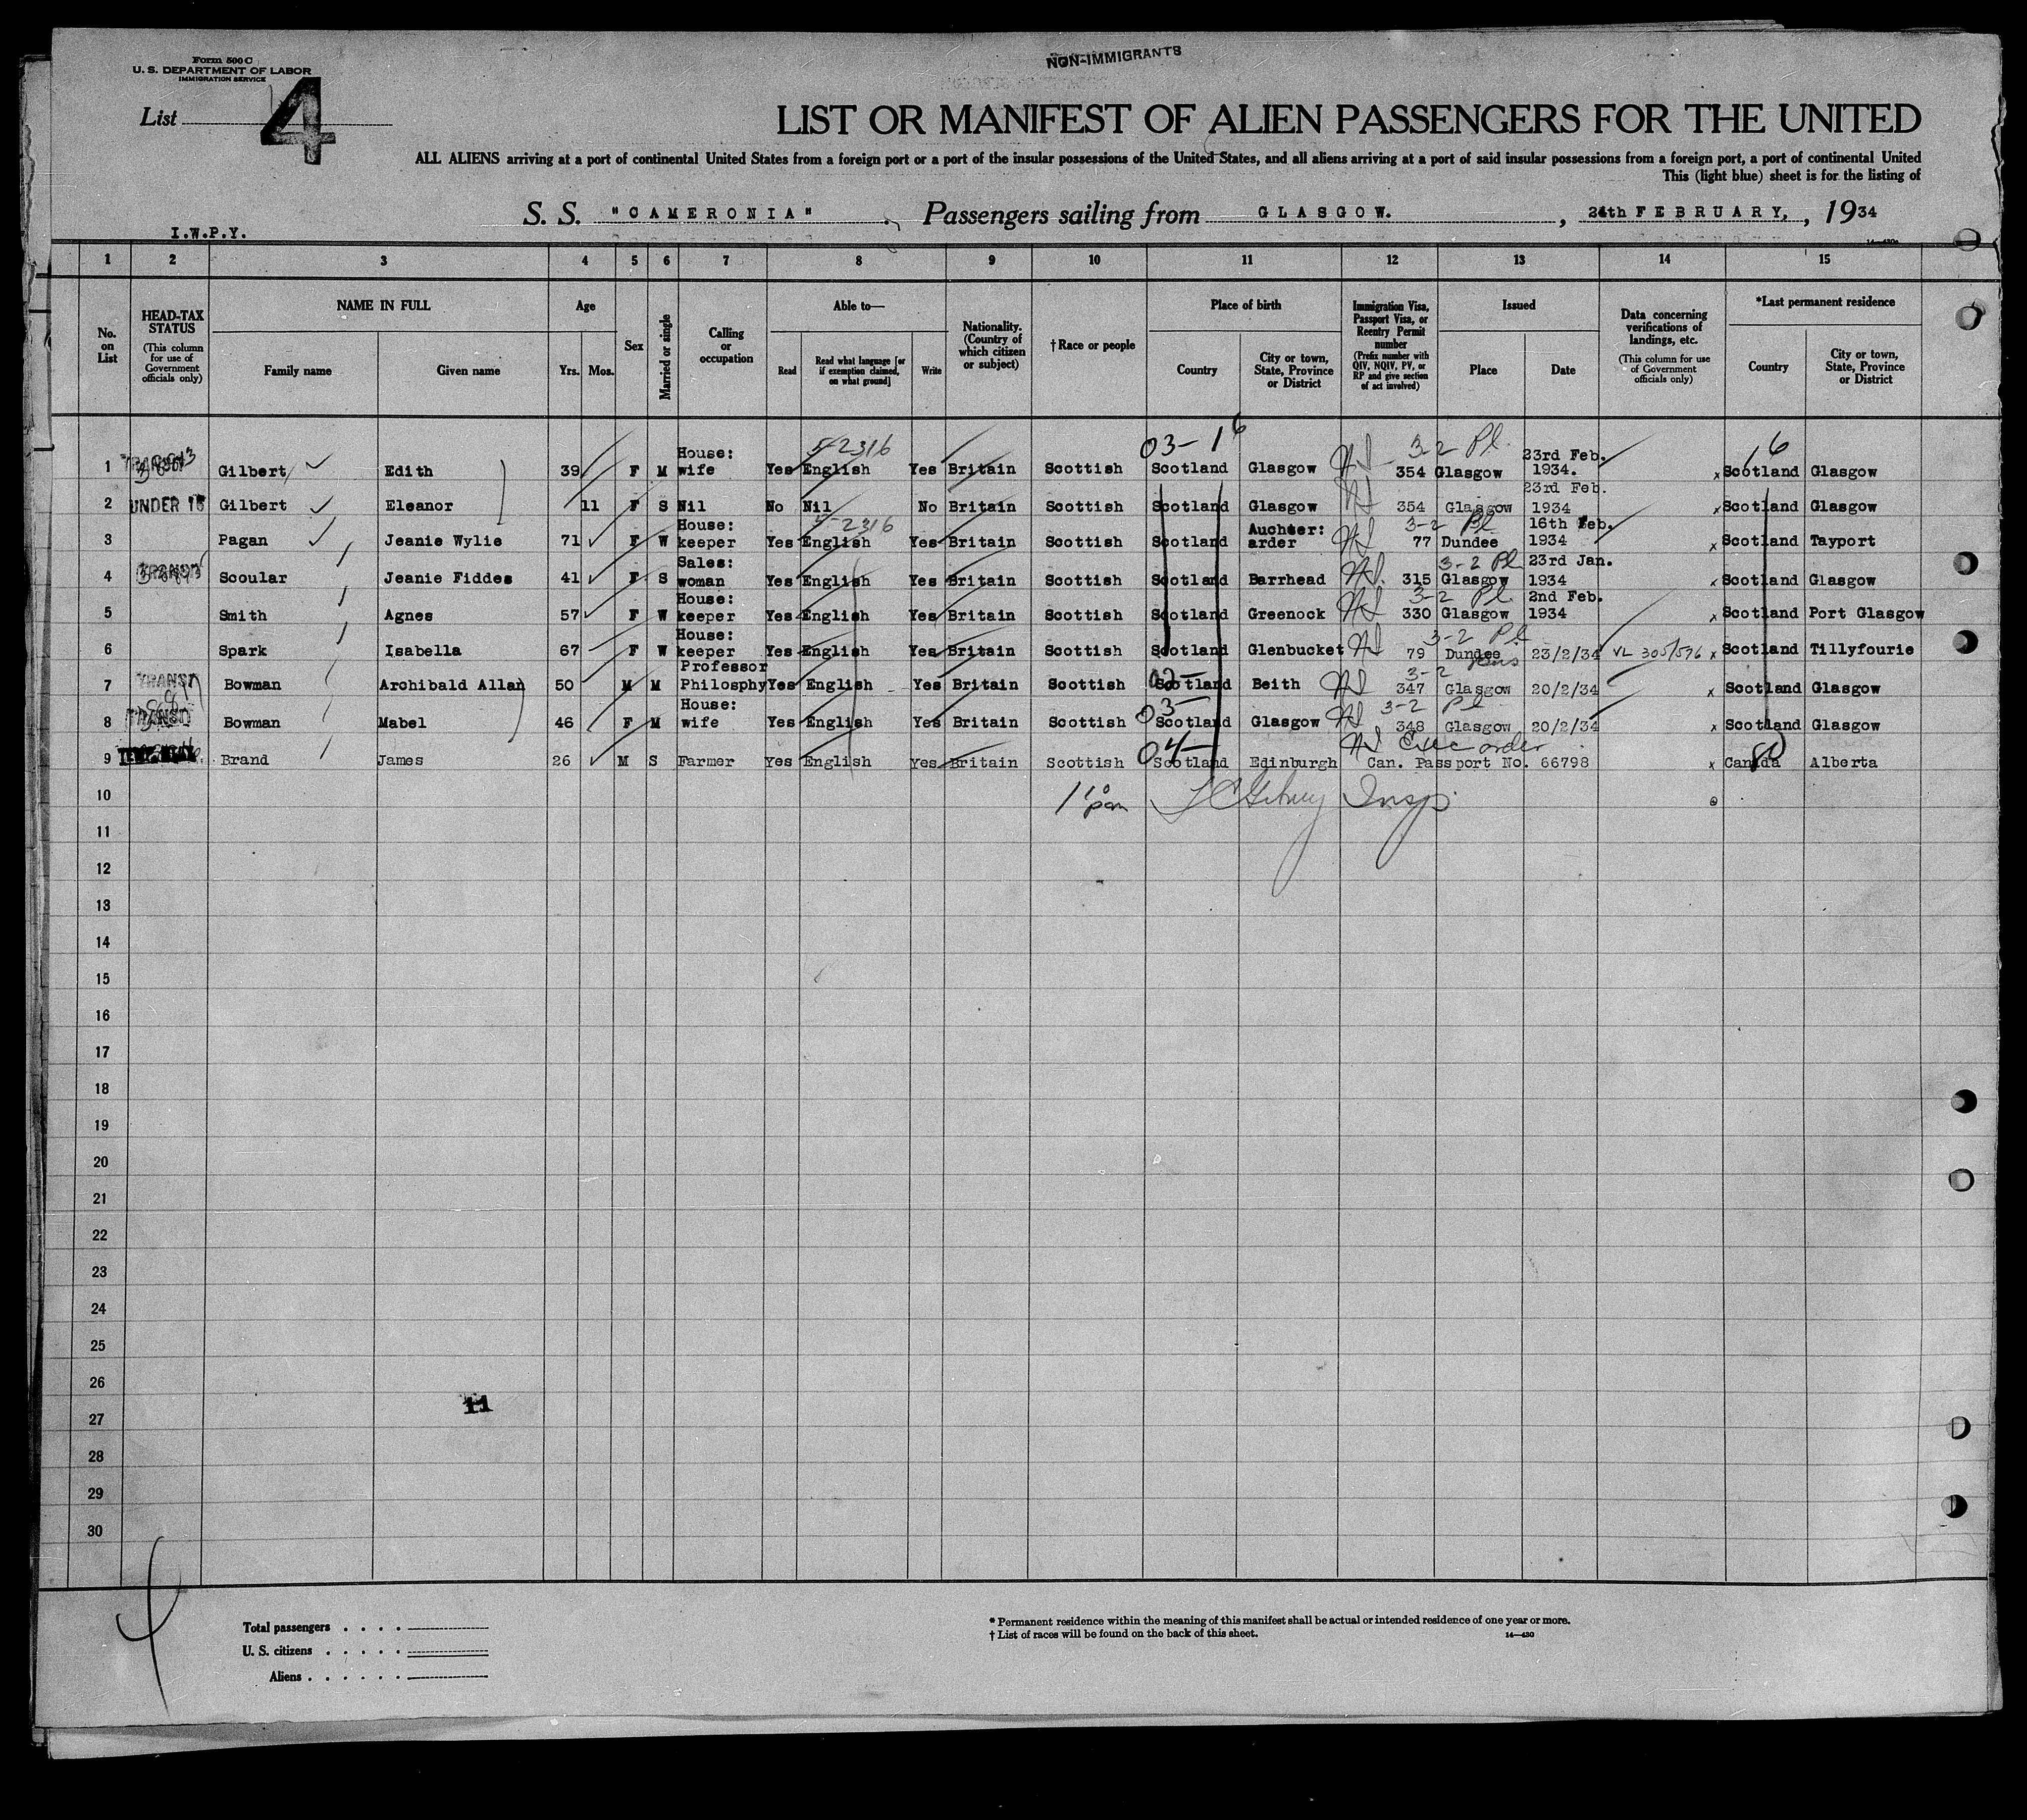 Form 500 C
U. S. DEPARTMENT OF LABOR
IMMIGRATION SERVICE
NON-IMMIGRANTS
List 4
LIST OR MANIFEST OF ALIEN PASSENGERS FOR THE UNITED
ALL ALIENS arriving at a port of continental United States from a foreign port or a port of the insular possessions of the United States, and all aliens arriving at a port of said insular possessions from a foreign port, a port of continental United
This (light blue) sheet is for the listing of
S. S. "CAMERONIA" Passengers sailing from GLASGOW. , 24th FEBRUARY, , 1934
I.W.P.Y.
1 2 3 4 5 6 7 8 9 10 11 12 13 14 15
No. on List
HEAD-TAX STATUS (This column for use of Government officials only)
NAME IN FULL Family name Given name
Age Yrs. Mos.
Sex
Married or single
Calling or occupation
Able to— Read Read what language [or if exemption claimed, on what ground] Write
Nationality. (Country of which citizen or subject)
†Race or people
Place of birth Country City or town, State, Province or District
Immigration Visa, Passport Visa, or Reentry Permit number (Prefix number with QIV, NQIV, PV, or RP and give section of act involved)
Issued Place Date
Data concerning verifications of landings, etc. (This column for use of Government officials only)
*Last permanent residence Country City or town, State, Province or District
5-2316 03-16 3-2 Pl. 16
1 TRANSIT Gilbert Edith 39 F M House: wife Yes English Yes Britain Scottish Scotland Glasgow 354 Glasgow 23rd Feb. 1934. x Scotland Glasgow
2 UNDER 16 Gilbert Eleanor 11 F S Nil No Nil No Britain Scottish Scotland Glasgow 354 Glasgow 23rd Feb. 1934 x Scotland Glasgow
5-2316 3-2 Pl
3 Pagan Jeanie Wylie 71 F W House: keeper Yes English Yes Britain Scottish Scotland Auchter: arder 77 Dundee 16th Feb. 1934 x Scotland Tayport
3-2 Pl
4 TRANSIT Scoular Jeanie Fiddes 41 F S Sales: woman Yes English Yes Britain Scottish Scotland Barrhead 315 Glasgow 23rd Jan. 1934 x Scotland Glasgow
3-2 Pl.
5 Smith Agnes 57 F W House: keeper Yes English Yes Britain Scottish Scotland Greenock 330 Glasgow 2nd Feb. 1934 x Scotland Port Glasgow
3-2 Pl
6 Spark Isabella 67 F W House: keeper Yes English Yes Britain Scottish Scotland Glenbucket 79 Dundee 23/2/34 VL 305/596 x Scotland Tillyfourie
02- 3-2
7 TRANSIT Bowman Archibald Allan 50 M M Professor Philosphy Yes English Yes Britain Scottish Scotland Beith 347 Glasgow 20/2/34 x Scotland Glasgow
03- 3-2 Pl
8 TRANSIT Bowman Mabel 46 F M House: wife Yes English Yes Britain Scottish Scotland Glasgow 348 Glasgow 20/2/34 x Scotland Glasgow
04- Exec order 80
9 Brand James 26 M S Farmer Yes English Yes Britain Scottish Scotland Edinburgh Can. Passport No. 66798 x Canada Alberta
10 Insp.
11
12
13
14
15
16
17
18
19
20
21
22
23
24
25
26
11
27
28
29
30
Total passengers . . . .
U. S. citizens . . . . .
Aliens . . . . . .
* Permanent residence within the meaning of this manifest shall be actual or intended residence of one year or more.
† List of races will be found on the back of this sheet.
14—430